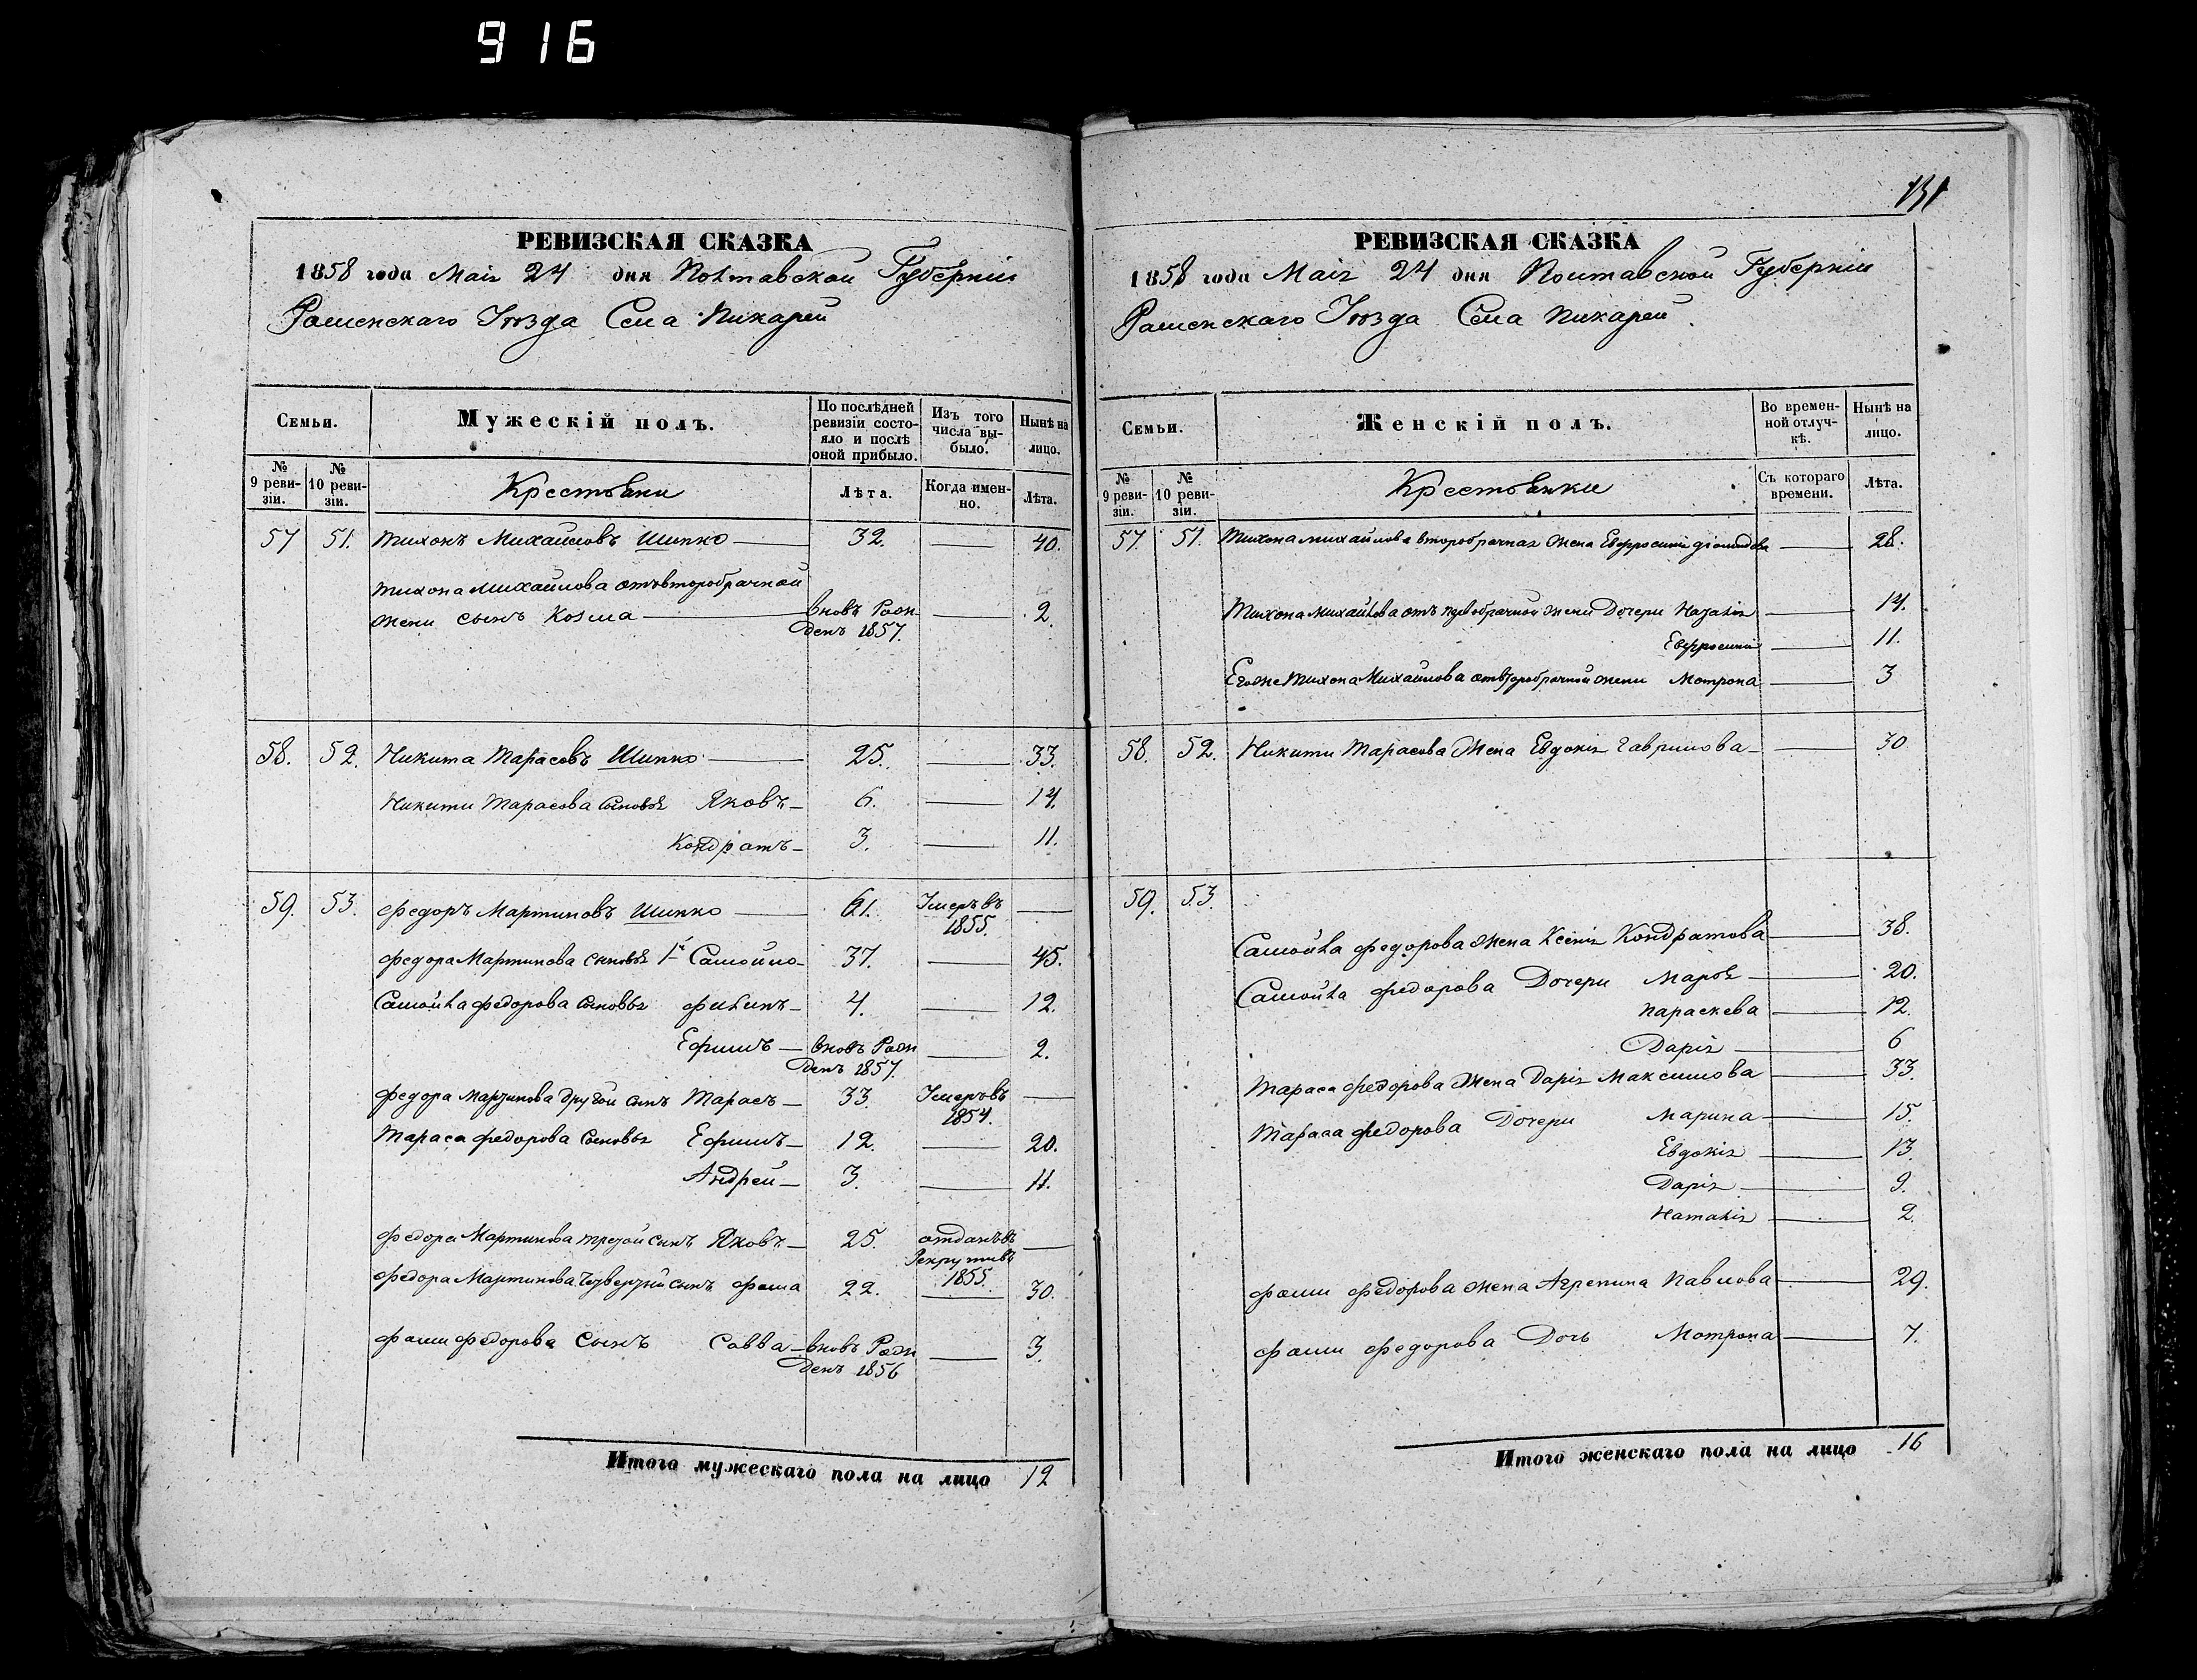 916
131
РЕВИЗСКАЯ СКАЗКА
1858 года Маія 24 дня Полтавской Губерніи
Роменскаго Уѣзда Села Пикарей
Семьи.
Мужескій полъ.
По послѣдней ревизіи состояло и послѣ оной прибыло.
Изъ того числа выбыло.
Нынѣ на лицо.
№ 9 ревизіи.
№ 10 ревизіи.
Крестьяни
Лѣта.
Когда именно.
Лѣта.
57 51. Тихонъ Михайловъ Шипко 32. 40.
Тихона Михайлова отъ второбрачной
жени сынъ Козма вновь Рожденъ 1857. 2.
58. 52. Никита Тарасовъ Шипко 25. 33.
Никити Тарасова сыновья Яковъ 6. 14.
Кондратъ 3. 11.
59. 53. Федоръ Мартиновъ Шипко 61. Умеръ въ 1855.
Федора Мартинова сыновья 1й Самойло 37. 45.
Самойла Федорова сыновья Филипъ 4. 12.
Ефимъ вновь Рожденъ 1857. 2.
Федора Мартинова другой сынъ Тарасъ 33. Умеръ въ 1854.
Тараса Федорова сыновья Ефимъ 12. 20.
Андрей 3. 11.
Федора Мартинова третой сынъ Яковъ 25. отданъ въ Рекруты въ 1855.
Федора Мартинова четвертый сынъ Фома 22. 30.
Фоми Федорова Сынъ Савва вновь Рожденъ 1856 3.
Итого мужескаго пола на лицо 12
РЕВИЗСКАЯ СКАЗКА
1858 года Маія 24 дня Полтавской Губерніи
Роменскаго Уѣзда Села Пикарей
Семьи.
Женскій полъ.
Во временной отлучкѣ.
Нынѣ на лицо.
№ 9 ревизіи.
№ 10 ревизіи.
Крестьянки
Съ котораго времени.
Лѣта.
57. 51. Тихона Михайлова второбрачная жена Евфросинія 28.
Тихона Михайлова отъ первобрачной жени Дочери Наталія 14.
Евфросинія 11.
Егоже Тихона Михайлова отъ второбрачной жени Мотрона 3
58. 52. Никити Тарасова Жена Евдокія Гаврилова 30
59. 53.
Самойла Федорова жена Ксенія Кондратова 38.
Самойла Федорова Дочери Марья 20.
Параскева 12.
Дарія 6
Тараса Федорова Жена Дарія Максимова 33.
Тараса Федорова Дочери Марина 15.
Евдокія 13.
Дарія 9.
Наталія 2.
Фоми Федорова жена Агрепина Павлова 29.
Фоми Федорова Дочь Мотрона 7.
Итого женскаго пола на лицо 16